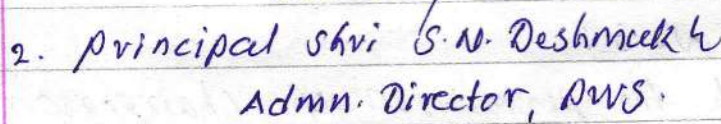 2. Principal Shri S.N. Deshmukh
Admn. Director, PWS.